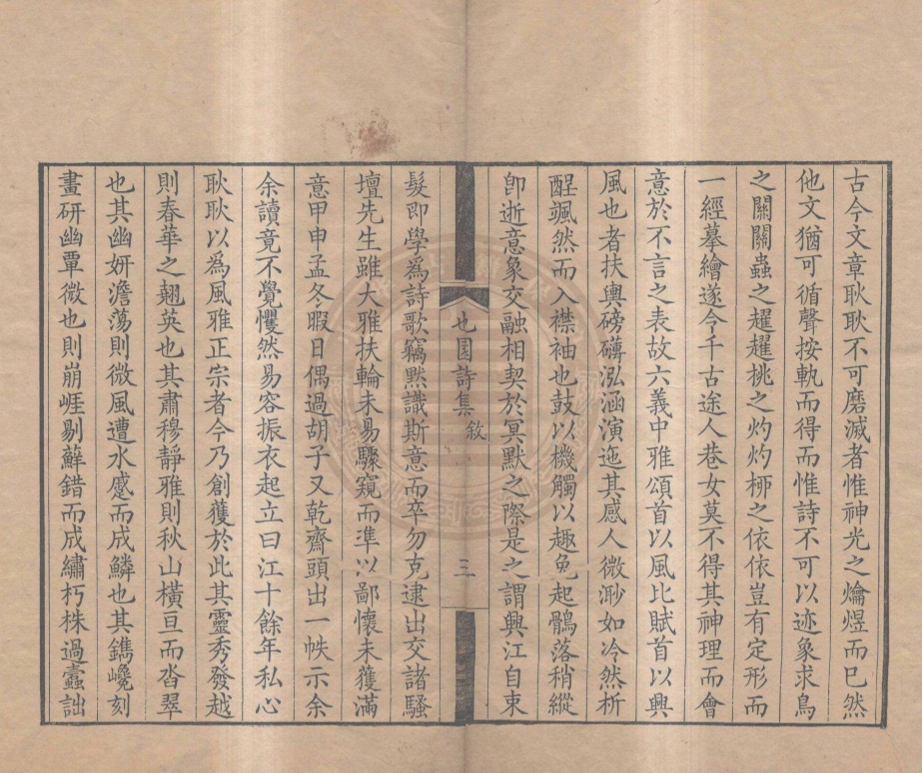 古今文章耿耿不可磨滅者惟神光之爚煜而已然
他文猶可循聲按軌而得而惟詩不可以迹象求鳥
之關關蟲之趯趯桃之灼灼栁之依依豈有定形而
一經摹繪遂令千古途人巷女莫不得其神理而會
意於不言之表故六義中雅頌首以風比賦首以興
風也者扶輿磅礴泓涵演迤其感人微渺如冷然析
酲颯然而入襟袖也鼓以機觸以趣兔起鶻落稍縱
卽逝意象交融相契於冥默之際是之謂興江自束
也園詩集 敘 三
髮即學為詩歌竊黙識斯意而卒勿克逮出交諸騷
壇先生雖大雅扶輪未易驟窺而準以鄙懷未獲滿
意甲申孟冬暇日偶過胡子又乾齋頭出一帙示余
余讀竟不覺懼然易容振衣起立曰江十餘年私心
耿耿以為風雅正宗者今乃創獲於此其靈秀發越
則春華之翹英也其肅穆靜雅則秋山橫亘而沓翠
也其幽妍澹蕩則微風遭水蹙而成鱗也其鐫巉刻
畫研幽覃微也則崩崕剔蘚錯而成繡朽株過蠹詘